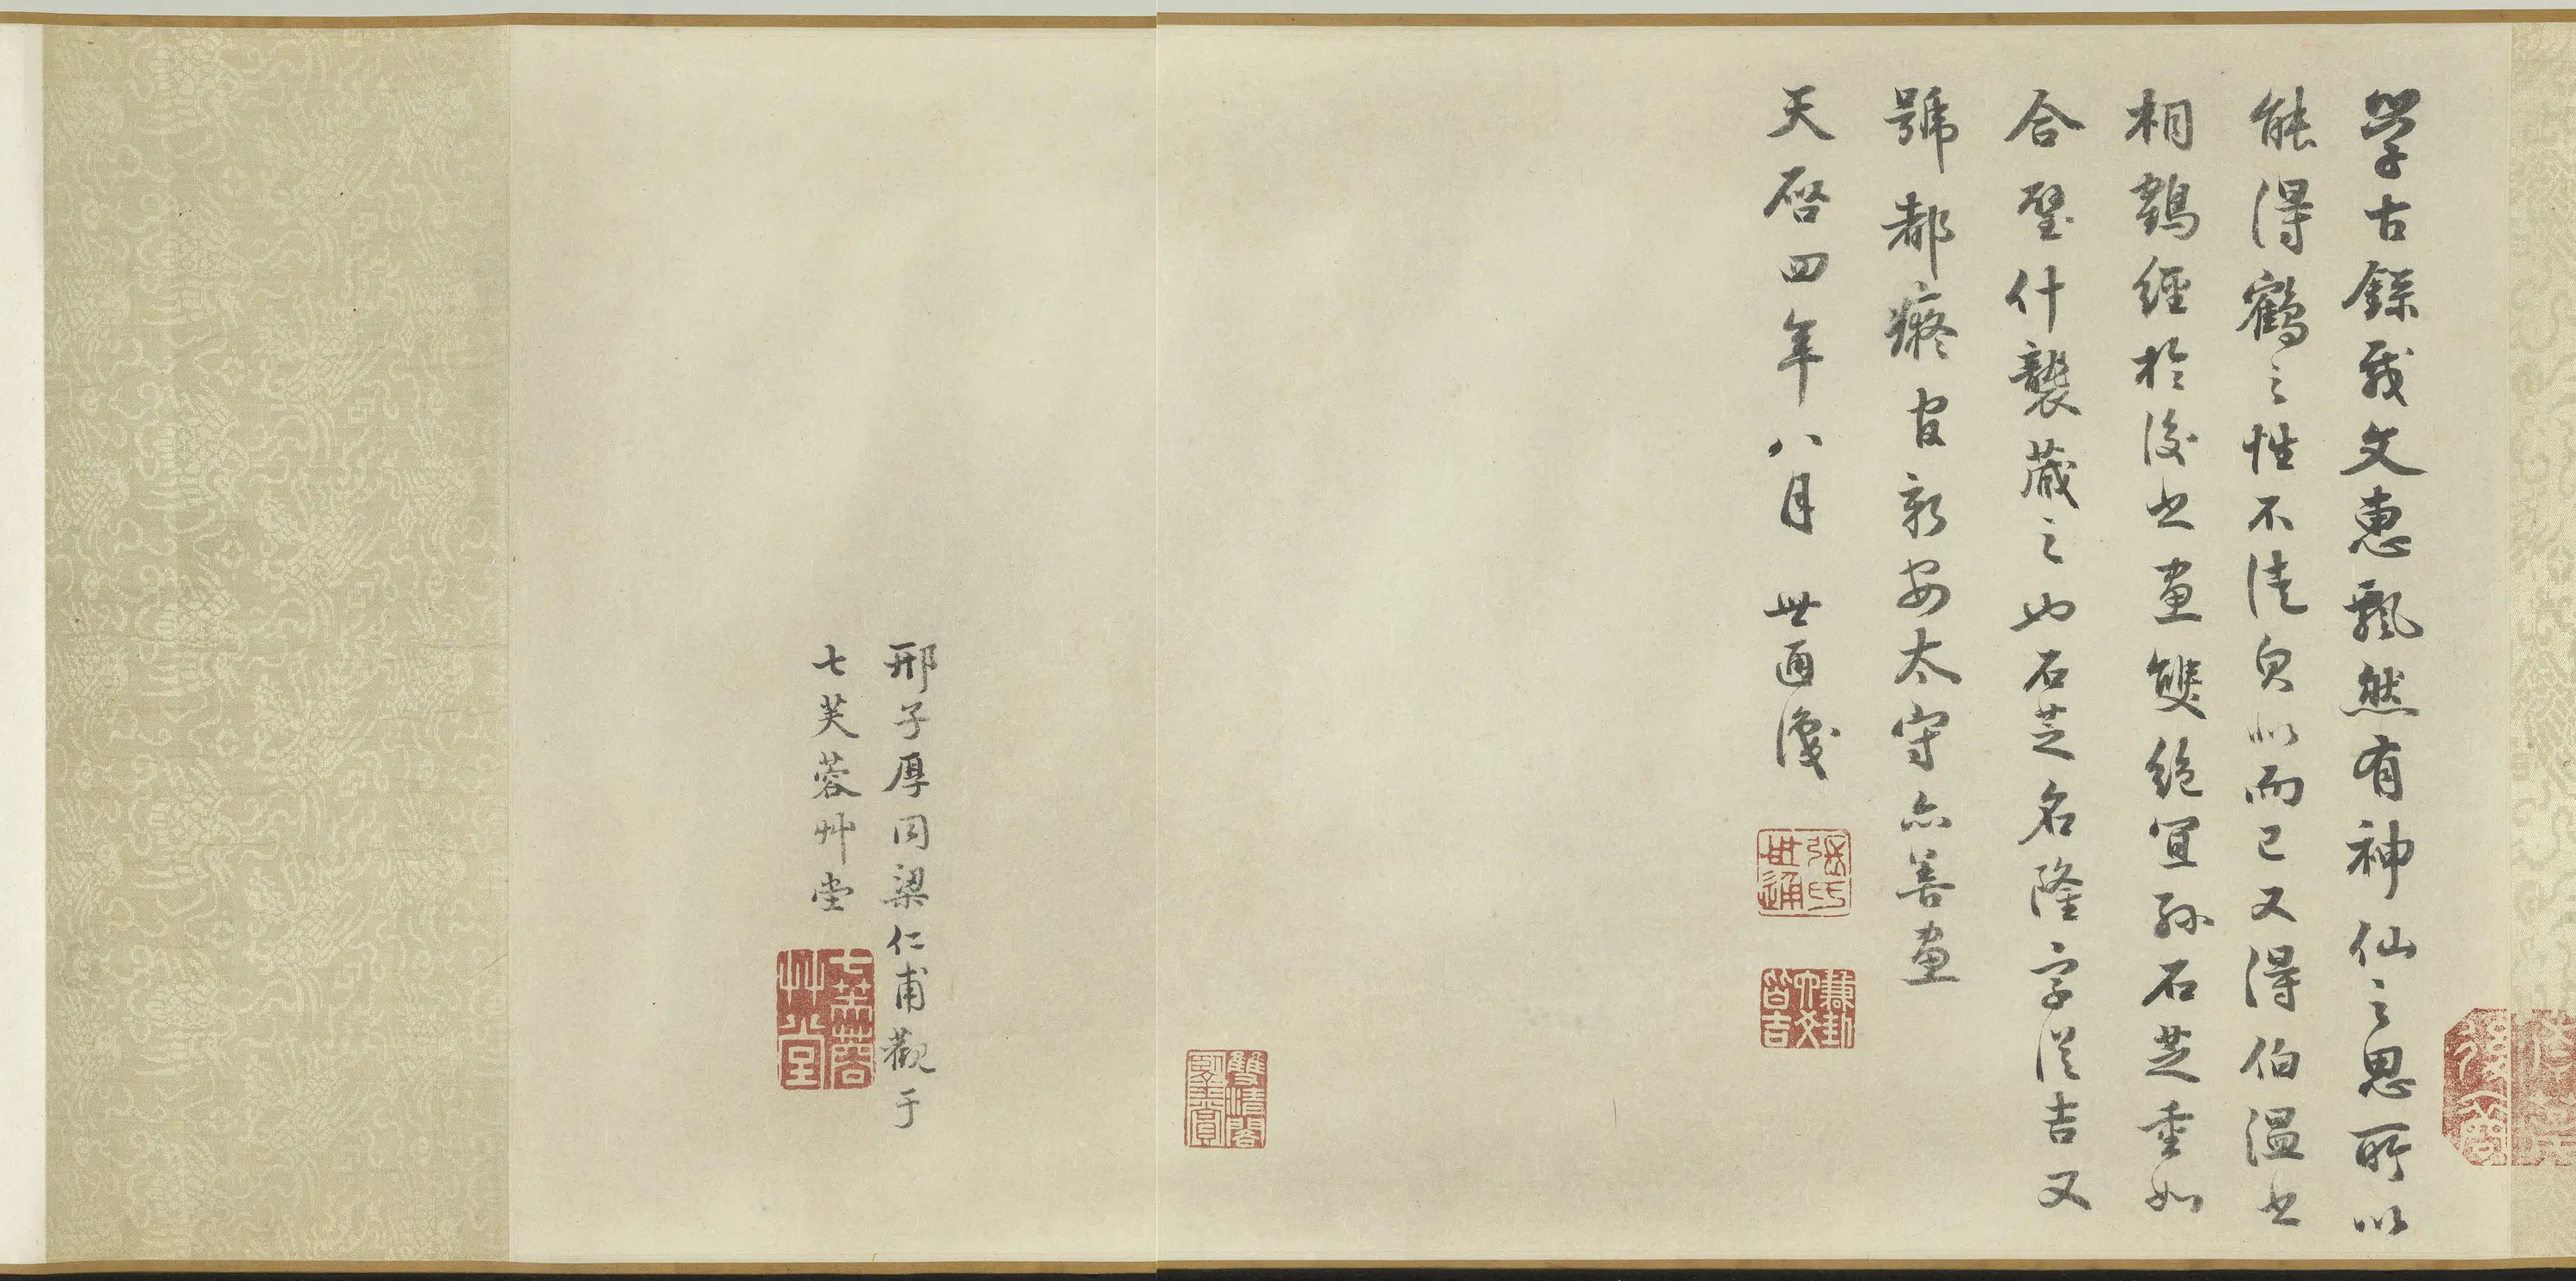 學古錄我文惠飄然有神仙之思所以
能得鶴之性不徒貌似而已又得伯溫書
相鶴經於後書畫雙絕宜孫石芝重如
合璧什襲藏之也石芝名隆字從吉又
號都癡官新安太守亦善畫
天啓四年八月 世通識
張氏世通
雙清閣
邢子厚同梁仁甫觀于
七芙蓉艸堂
七芙蓉艸堂